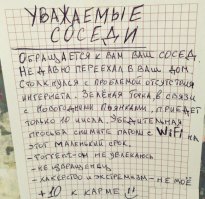 УВАЖАЕМЫЕ
СОСЕДИ
ОБРАЩАЕТСЯ К ВАМ ВАШ СОСЕД.
НЕДАВНО ПЕРЕЕХАЛ В ВАШ ДОМ.
СТОЛКНУЛСЯ С ПРОБЛЕМОЙ ОТСУТСТВИЯ
ИНТЕРНЕТА. ЗЕЛЁНАЯ ТОЧКА В СВЯЗИ
С НОВОГОДНИМИ ПЬЯНКАМИ, ПРИЕДЕТ
ТОЛЬКО 10 ЧИСЛА. УБЕДИТЕЛЬНАЯ
ПРОСЬБА СНИМИТЕ ПАРОЛИ С WiFi НА
ЭТОТ МАЛЕНЬКИЙ СРОК.
- TORRENT-ОМ НЕ УВЛЕКАЮСЬ
- НЕ ИЗВРАЩЕНЕЦ
- ХАКЕРСТВО И ЭКСТРЕМИЗМ - НЕ МОЁ
+10 К КАРМЕ